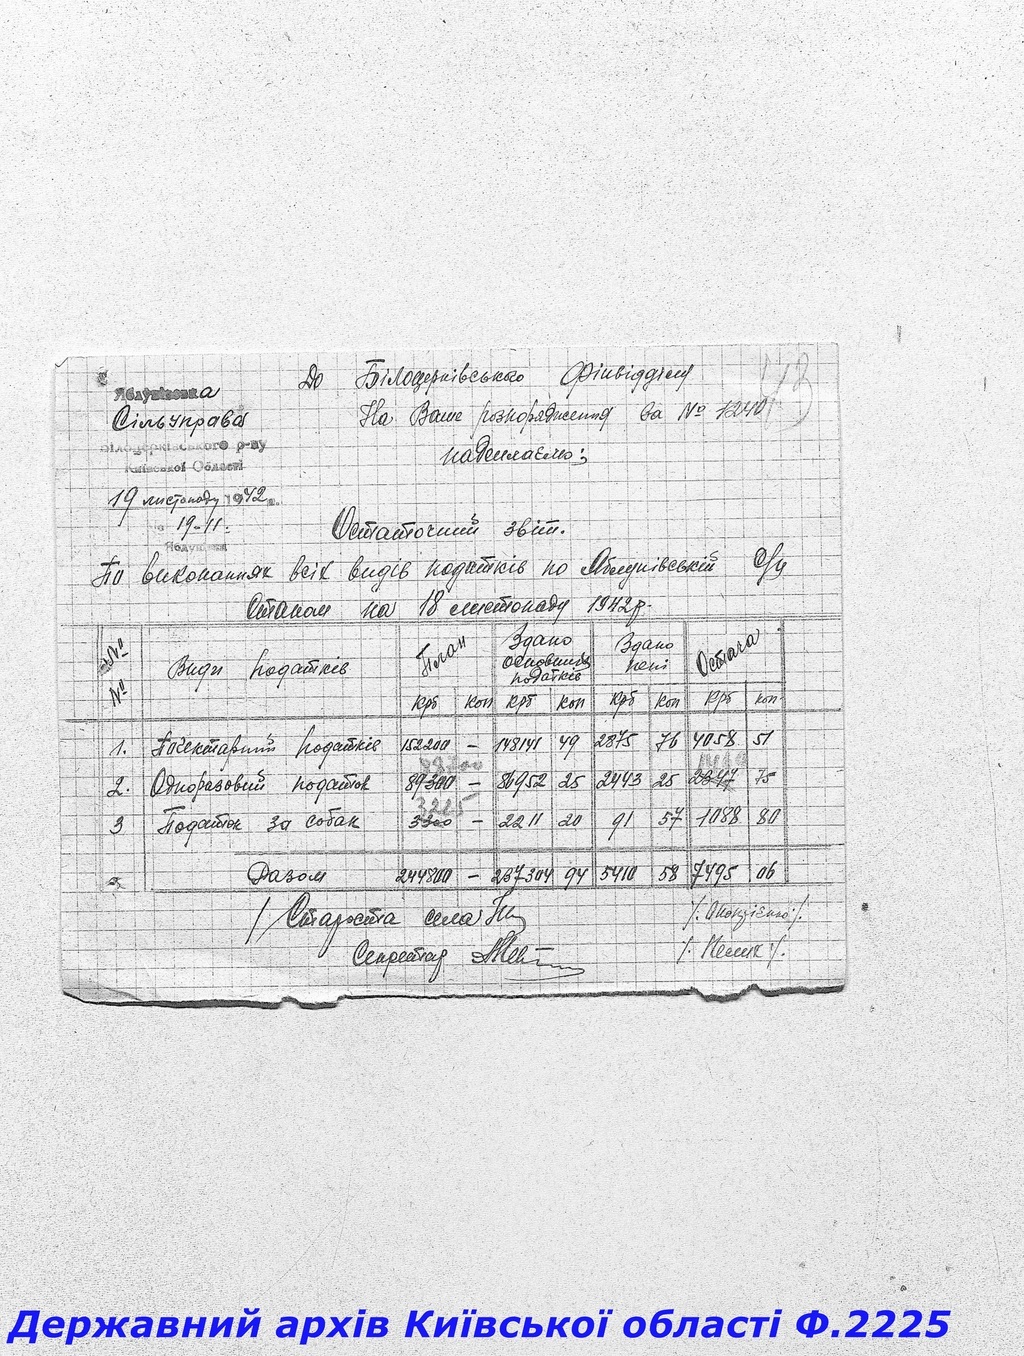 Яблунівка
Сільуправа
Білоцерківського р-ну
Київської Області
19 листопаду 1942 р.
19-11.
До Білоцерківського Фінвідділу
На Ваше розпорядження за № 1240
надсилаємо:
Остаточний звіт.
По виконаннях всіх видів податків по Яблунівській с/у
Станом на 18 листопаду 1942 р.
№ № Види податків План Здано основних податків Здано пені Остача
Крб Коп Крб Коп Крб Коп Крб Коп
1. Погектарний податків 152200 — 148141 49 2875 76 4058 51
2. Одноразовий податок 89300 — 86952 25 2443 25 2347 75
3225
3 Податок за собак 3300 — 2211 20 91 57 1088 80
Разом 244800 — 237304 94 5410 58 7495 06
Староста села
Секретар
Державний архів Київської області Ф.2225